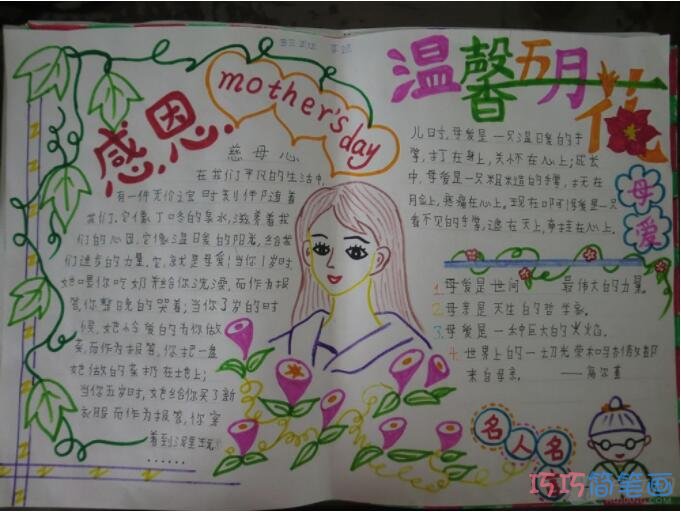 感恩.
mother's day
慈母心
在我们平凡的生活中,
有一件无价之宝时刻伴随着
我们.它像丁冬的泉水,滋养着我
们的心田.它像温暖的阳光,给我
们进步的力量.它就是母爱!当你1岁时,
她喂你吃奶并给你洗澡,而作为报
答,你整晚的哭着;当你3岁的时
候,她怜爱的为你做
菜,而作为报答,你把一盘
她做的菜扔在地上;
当你五岁时,她给你买了新
衣服而作为报答,你穿
着到泥里玩!
······
温馨五月花
儿时,母爱是一只温暖的手
掌,打在身上,关怀在心上;成长
中,母爱是一只粗糙的手掌,
疼痛在心上,现在
看不见的手掌,遮在天上,牵挂在心上.
母爱
1.母爱是世间 最伟大的力量.
2.母亲是天生的哲学家.
3.母爱是一种巨大的火焰.
4.世界上的一切光荣和骄傲都
来自母亲. ——高尔基
名人名
巧巧简笔画